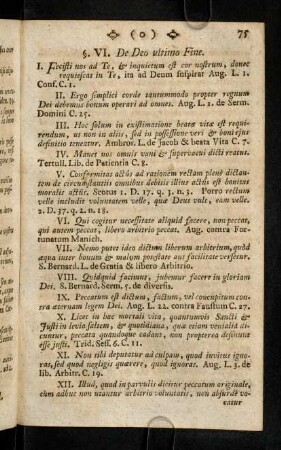 (o) 75
§. VI. De Deo ultimo Fine.
I. Fecisti nos ad Te, & inquietum est cor nostrum, donec
requiescat in Te, ita ad Deum suspirat Aug. L. 1.
Conf. C. 1.
II. Ergo simplici corde tantummodo propter regnum
Dei debemus bonum operari ad omnes. Aug. L. 2. de Serm.
Domini C. 25.
III. Hoc solum in existimatione beatæ vitæ est requi-
rendum, ut non in aliis, sed in possessione veri & boni ejus
definitio teneatur. Ambros. L. de Jacob & beata Vita C. 7.
IV. Manet nos omnis vani & supervacui dicti reatus.
Tertull. Lib. de Patientia C. 8.
V. Conformitas actûs ad rationem rectam plenè dictan-
tem de circumstantiis omnibus debitis illius actûs est bonitas
moralis actûs. Scotus 1. D. 17. q. 3. n. 3. Porro rectum
velle includit voluntatem velle, quæ Deus vult, eam velle.
2. D. 37. q. 2. n. 18.
VI. Qui cogitur necessitate aliquid facere, non peccat,
qui autem peccat, libero arbitrio peccat. Aug. contra For-
tunatum Manich.
VII. Nemo putet ideo dictum liberum arbitrium, quòd
æqua inter bonum & malum potestate aut facilitate versetur.
S. Bernard. L. de Gratia & libero Arbitrio.
VIII. Quidquid faciunt, jubemur facere in gloriam
Dei. S. Bernard. Serm. 7. de diversis.
IX. Peccatum est dictum, factum, vel concupitum con-
tra æternam legem Dei. Aug. L. 22. contra Faustum C. 27.
X. Licet in hac mortali vita, quantumvis Sancti &
Justi in levia saltem, & quotidiana, quæ etiam venialia di-
cuntur, peccata quandoque cadant, non propterea desinunt
esse justi. Trid. Sess. 6. C. 11.
XI. Non tibi deputatur ad culpam, quod invitus igno-
ras, sed quod negligis quærere, quod ignoras. Aug. L. 3. de
lib. Arbitr. C. 19.
XII. Illud, quod in parvulis dicitur peccatum originale,
cùm adhuc non utantur arbitrio voluntatis, non absurdè vo-
catur